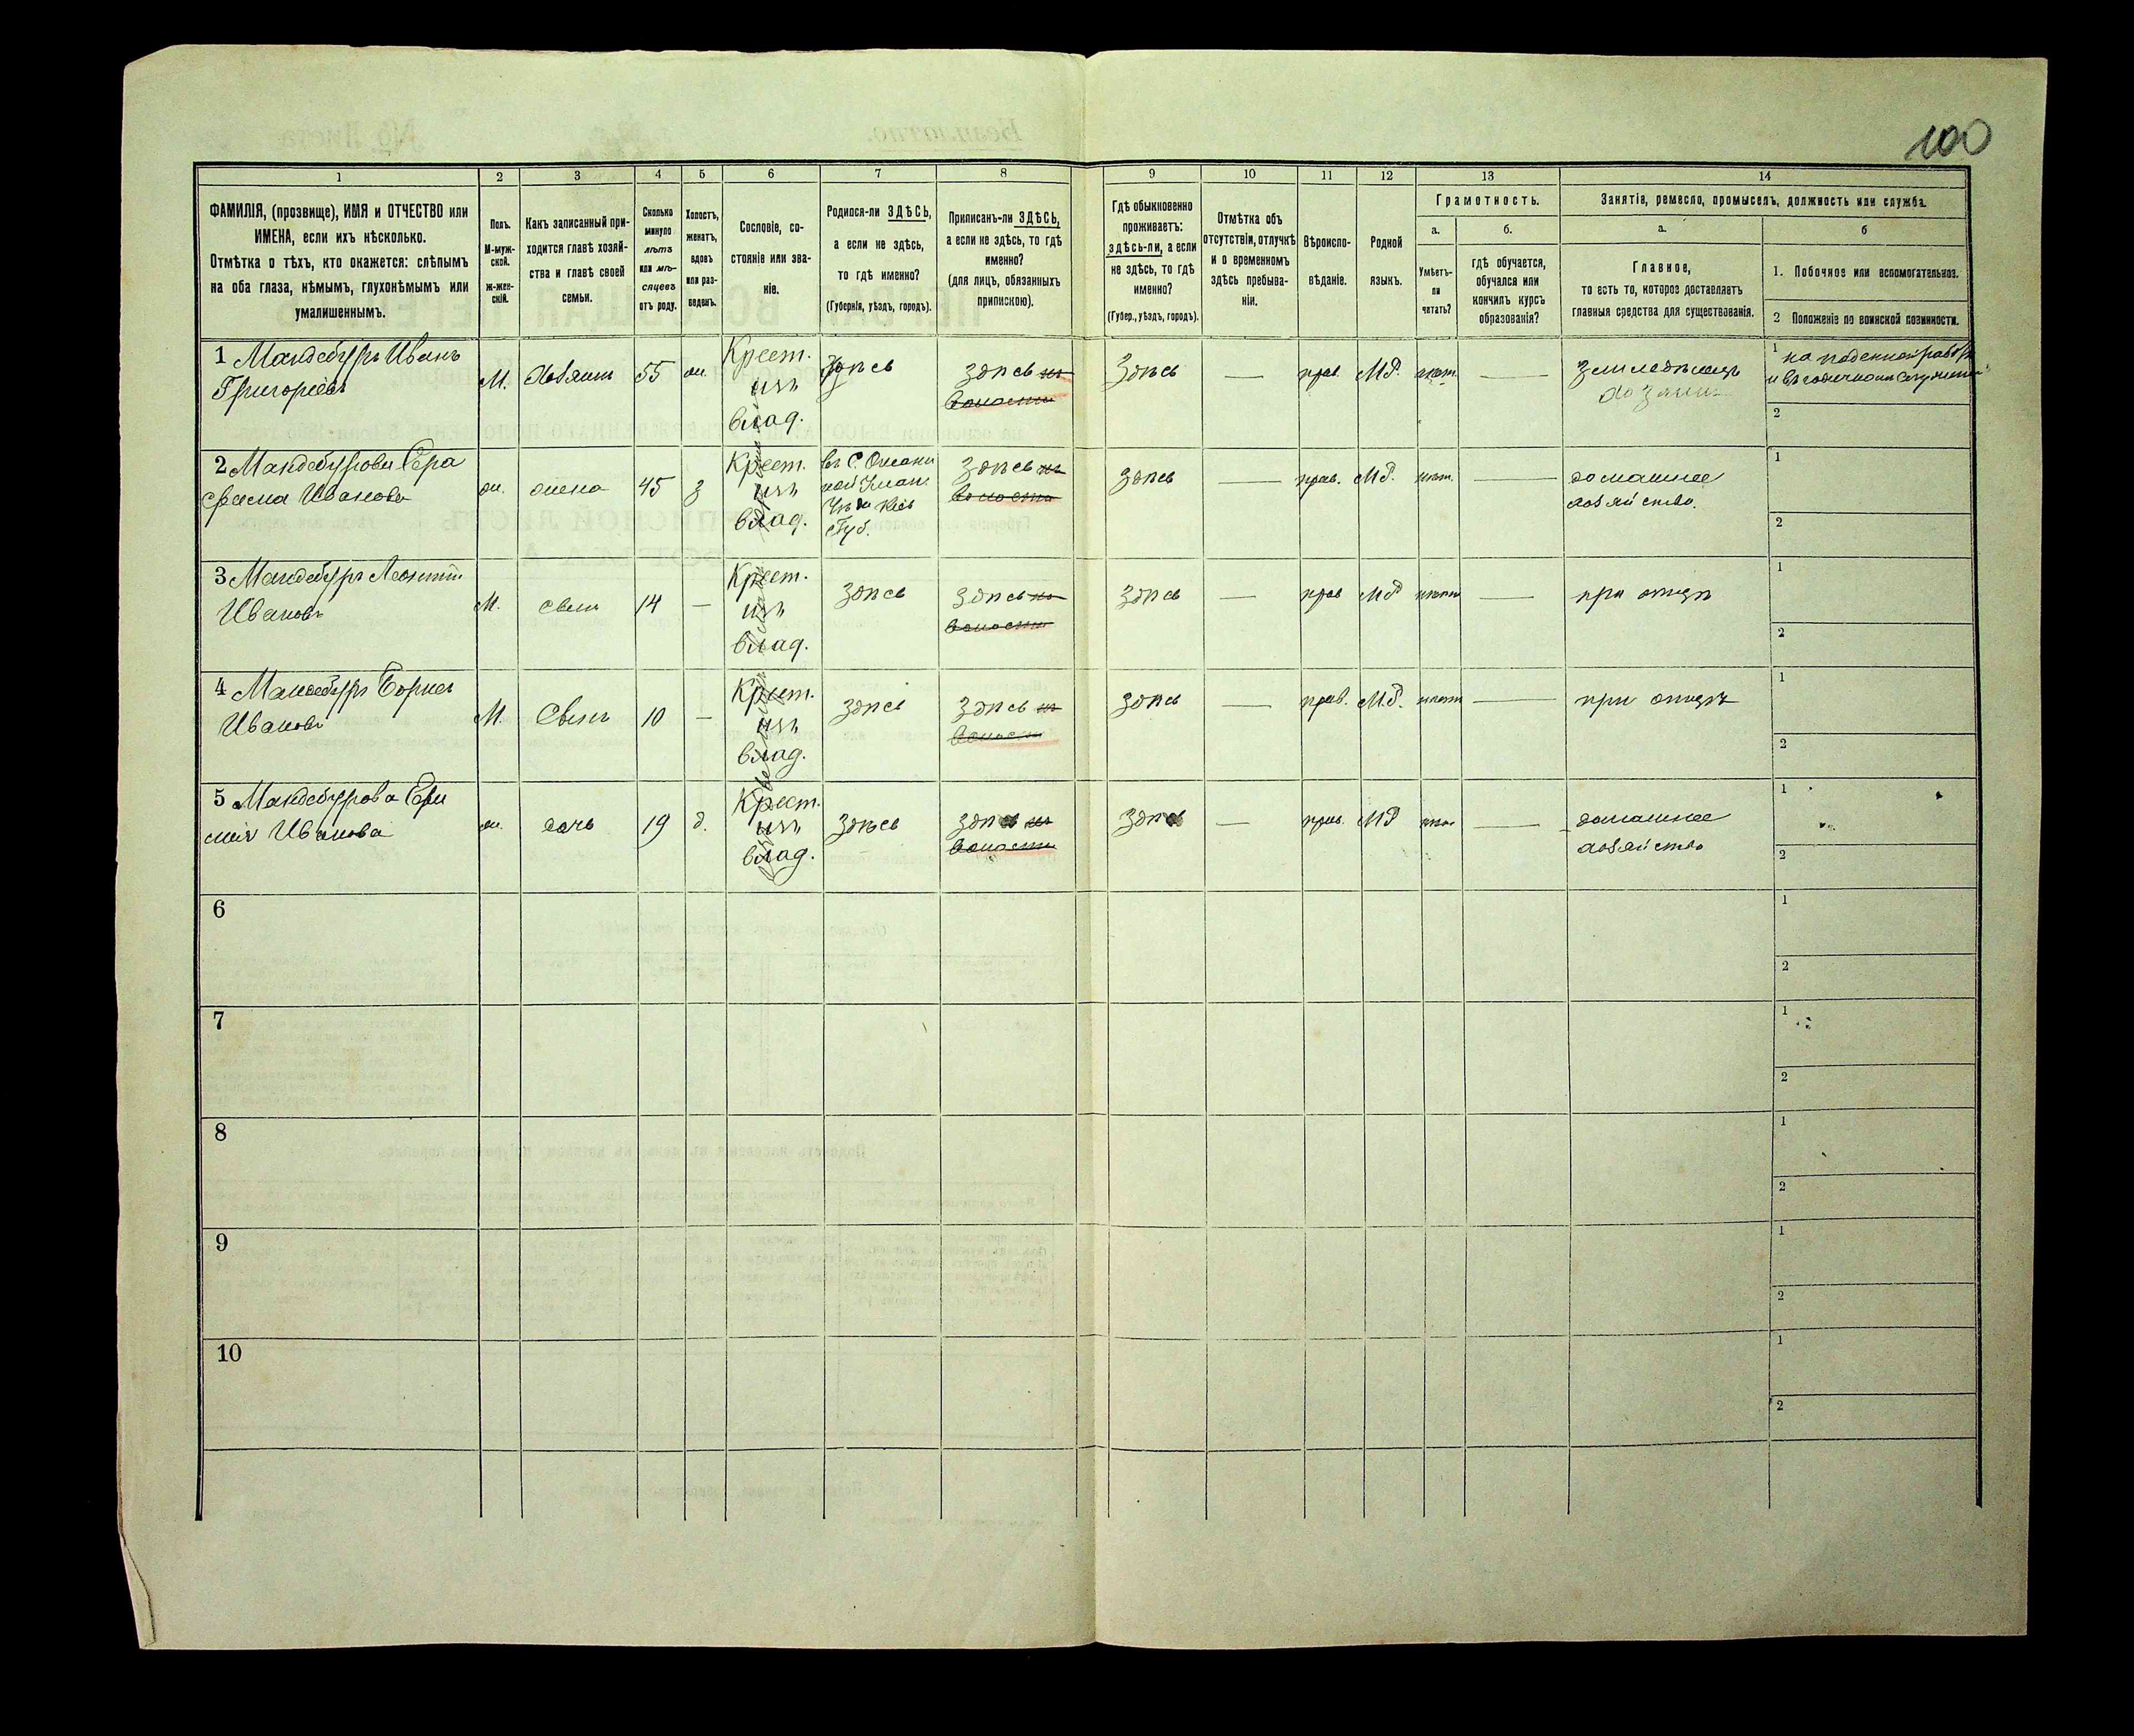 100
1
2
3
4
5
6
7
8
9
10
11
12
13
14
ФАМИЛІЯ, (прозвище), ИМЯ и ОТЧЕСТВО или
ИМЕНА, если ихъ нѣсколько.
Отмѣтка о тѣхъ, кто окажется: слѣпымъ
на оба глаза, нѣмымъ, глухонѣмымъ или
умалишеннымъ.
Полъ.
М-муж-
ской.
ж-жен-
скій.
Какъ записанный при-
ходится главѣ хозяй-
ства и главѣ своей
семьи.
Сколько
минуло
лѣтъ
или мѣ-
сяцевъ
отъ роду.
Холостъ,
женатъ,
вдовъ
или раз-
веденъ.
Сословіе, со-
стояніе или зва-
ніе.
Родился-ли ЗДѢСЬ,
а если не здѣсь,
то гдѣ именно?
(Губернія, уѣздъ, городъ).
Приписанъ-ли ЗДѢСЬ,
а если не здѣсь, то гдѣ
именно?
(для лицъ, обязанныхъ
припискою).
Гдѣ обыкновенно
проживаетъ:
здѣсь-ли, а если
не здѣсь, то гдѣ
именно?
(Губер., уѣздъ, городъ).
Отмѣтка объ
отсутствіи, отлучкѣ
и о временномъ
здѣсь пребыва-
ніи.
Вѣроиспо-
вѣданіе.
Родной
языкъ.
Грамотность.
а.
Умѣетъ-
ли
читать?
б.
гдѣ обучается,
обучался или
кончилъ курсъ
образованія?
Занятія, ремесло, промыселъ, должность или служба.
а.
Главное,
то есть то, которое доставляетъ
главныя средства для существованія.
б
1. Побочное или вспомогательное.
2 Положеніе по воинской повинности.
1 Мандебуръ Иванъ
Григорьевъ
М. Хозяинъ 55 ж. Крест.
изъ
влад.
здѣсь
здѣсь въ
волости
здѣсь — прав. М.Р. нѣт. — земледѣлецъ
хозяинъ
1 на поденной работѣ
2
2 Мандебурова Сера
фима Иванова
ж. жена 45 з Крест.
изъ
влад.
Губ.
здѣсь въ
волости
здѣсь — прав. М.Р. нѣт. — домашнее
хозяйство.
1
2
3 Мандебуръ Леонтій
Ивановъ
М. сынъ 14 — Крест.
изъ
влад.
здѣсь
здѣсь въ
волости
здѣсь — прав М.Р нѣтъ — при отцѣ
1
2
4 Мандебуръ
Ивановъ
М. Сынъ 10 — Крест.
изъ
влад.
здѣсь
здѣсь въ
волости
здѣсь — прав. М.Р. нѣтъ — при отцѣ
1
2
5 Мандебурова
Иванова
ж. дочь 19 д. Крест.
изъ
влад.
здѣсь
здѣсь въ
волости
здѣсь — прав. М.Р нѣт — домашнее
хозяйство
1
2
6
1
2
7
1
2
8
1
2
9
1
2
10
1
2